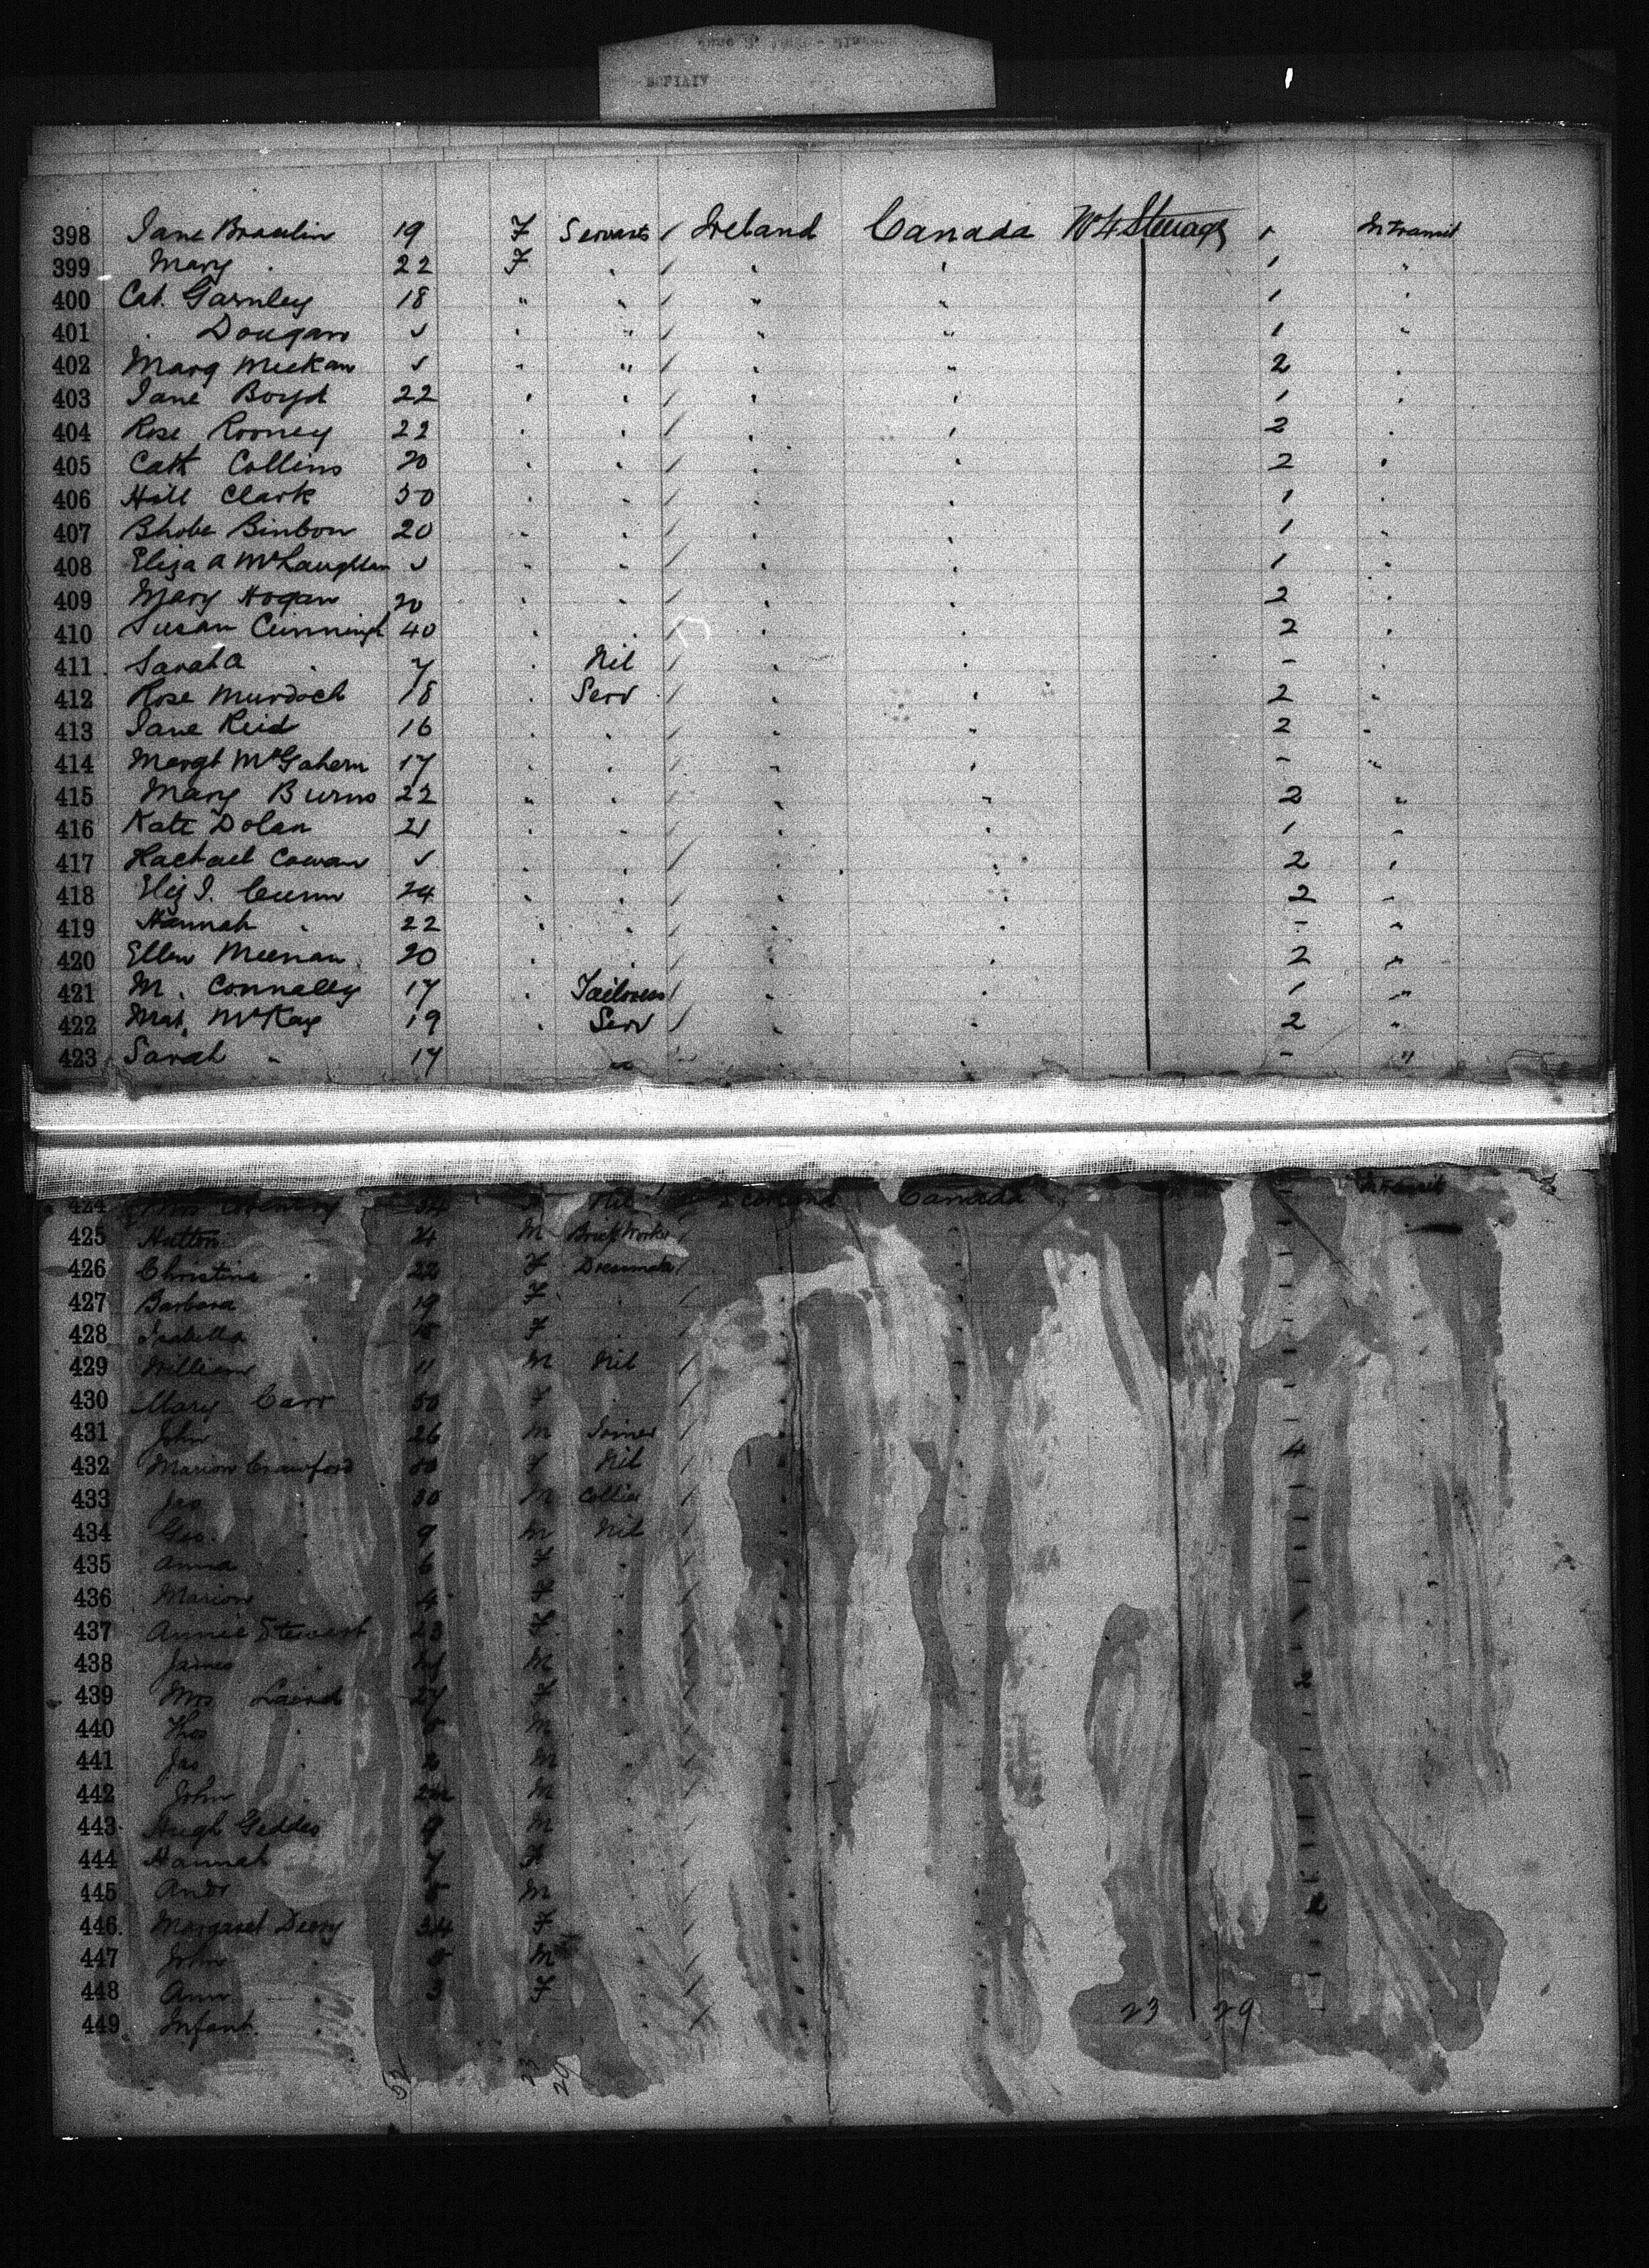 398 Jane Braulin 19 F Servants / Ireland Canada No 4 Steerage 1 In Transit
399 Mary " 22 F " / " " 1 "
400 Cat. Garnley 18 " " / " " 1 "
401 " Dougan ✓ " " / " " 1 "
402 Marg Meekan ✓ " " / " " 2 "
403 Jane Boyd 22 " " / " " 1 "
404 Rose Rooney 22 " " / " " 2 "
405 Cath Collins 20 " " / " " 2 "
406 Hill Clark 50 " " / " " 1 "
407 Bhobe Binbon 20 " " / " " 1 "
408 Eliza A McLaughlan ✓ " " / " " 1 "
409 Mary Hogan 20 " " / " " 2 "
410 Susan Cunningh 40 " " / " " 2 "
411 Sarah A " 7 " Nil / " " - "
412 Rose Murdoch 18 " Serv / " " 2 "
413 Jane Reid 16 " " / " " 2 "
414 Margt McGahern 17 " " / " " - "
415 Mary Burns 22 " " / " " 2 "
416 Kate Dolan 21 " " / " " 1 "
417 Rachael Cowan ✓ " " / " " 2 "
418 Eliz J. Cunn 24 " " / " " 2 "
419 Hannah " 22 " " / " " - "
420 Ellen Meenan 20 " " / " " 2 "
421 M. Connolly 17 " Tailoress / " " 1 "
422 Mat. McKay 19 " Serv / " " 2 "
423 Sarah " 17 " / " " - "
424 Mrs 34 Nil Scotland Canada - In Transit
425 Hutton 24 M Brick Worker / -
426 Christina " 22 F Dressmaker / " " -
427 Barbara 19 F " / " " -
428 Isabella " 15 F " / " " -
429 William 11 M Nil / " " -
430 Mary Carr 50 F " / " " -
431 John " 26 M Joiner / " " 4
432 Marion Crawford 50 F Nil / " " -
433 Jas " 30 M Collier / " " -
434 Geo. " 9 M Nil / " " -
435 Anna " 6 F " / " " -
436 Marion " 4 F " / " " -
437 Annie Stewart 23 F " / " " 1
438 James " M " / " " -
439 Mrs Laird 27 F " / " " 2
440 Thos " 5 M " / " " -
441 Jas " 2 M " / " " -
442 John " 2m M " / " " -
443 Hugh Geddes 9 M / " " -
444 Hannah 7 F / " " -
445 Andr 5 M / " " -
446 Margaret Deery 34 F " / " " 2
447 John " M " / " " -
448 Ann " 3 F " / " " -
449 Infant " / 23 29
52 23 29